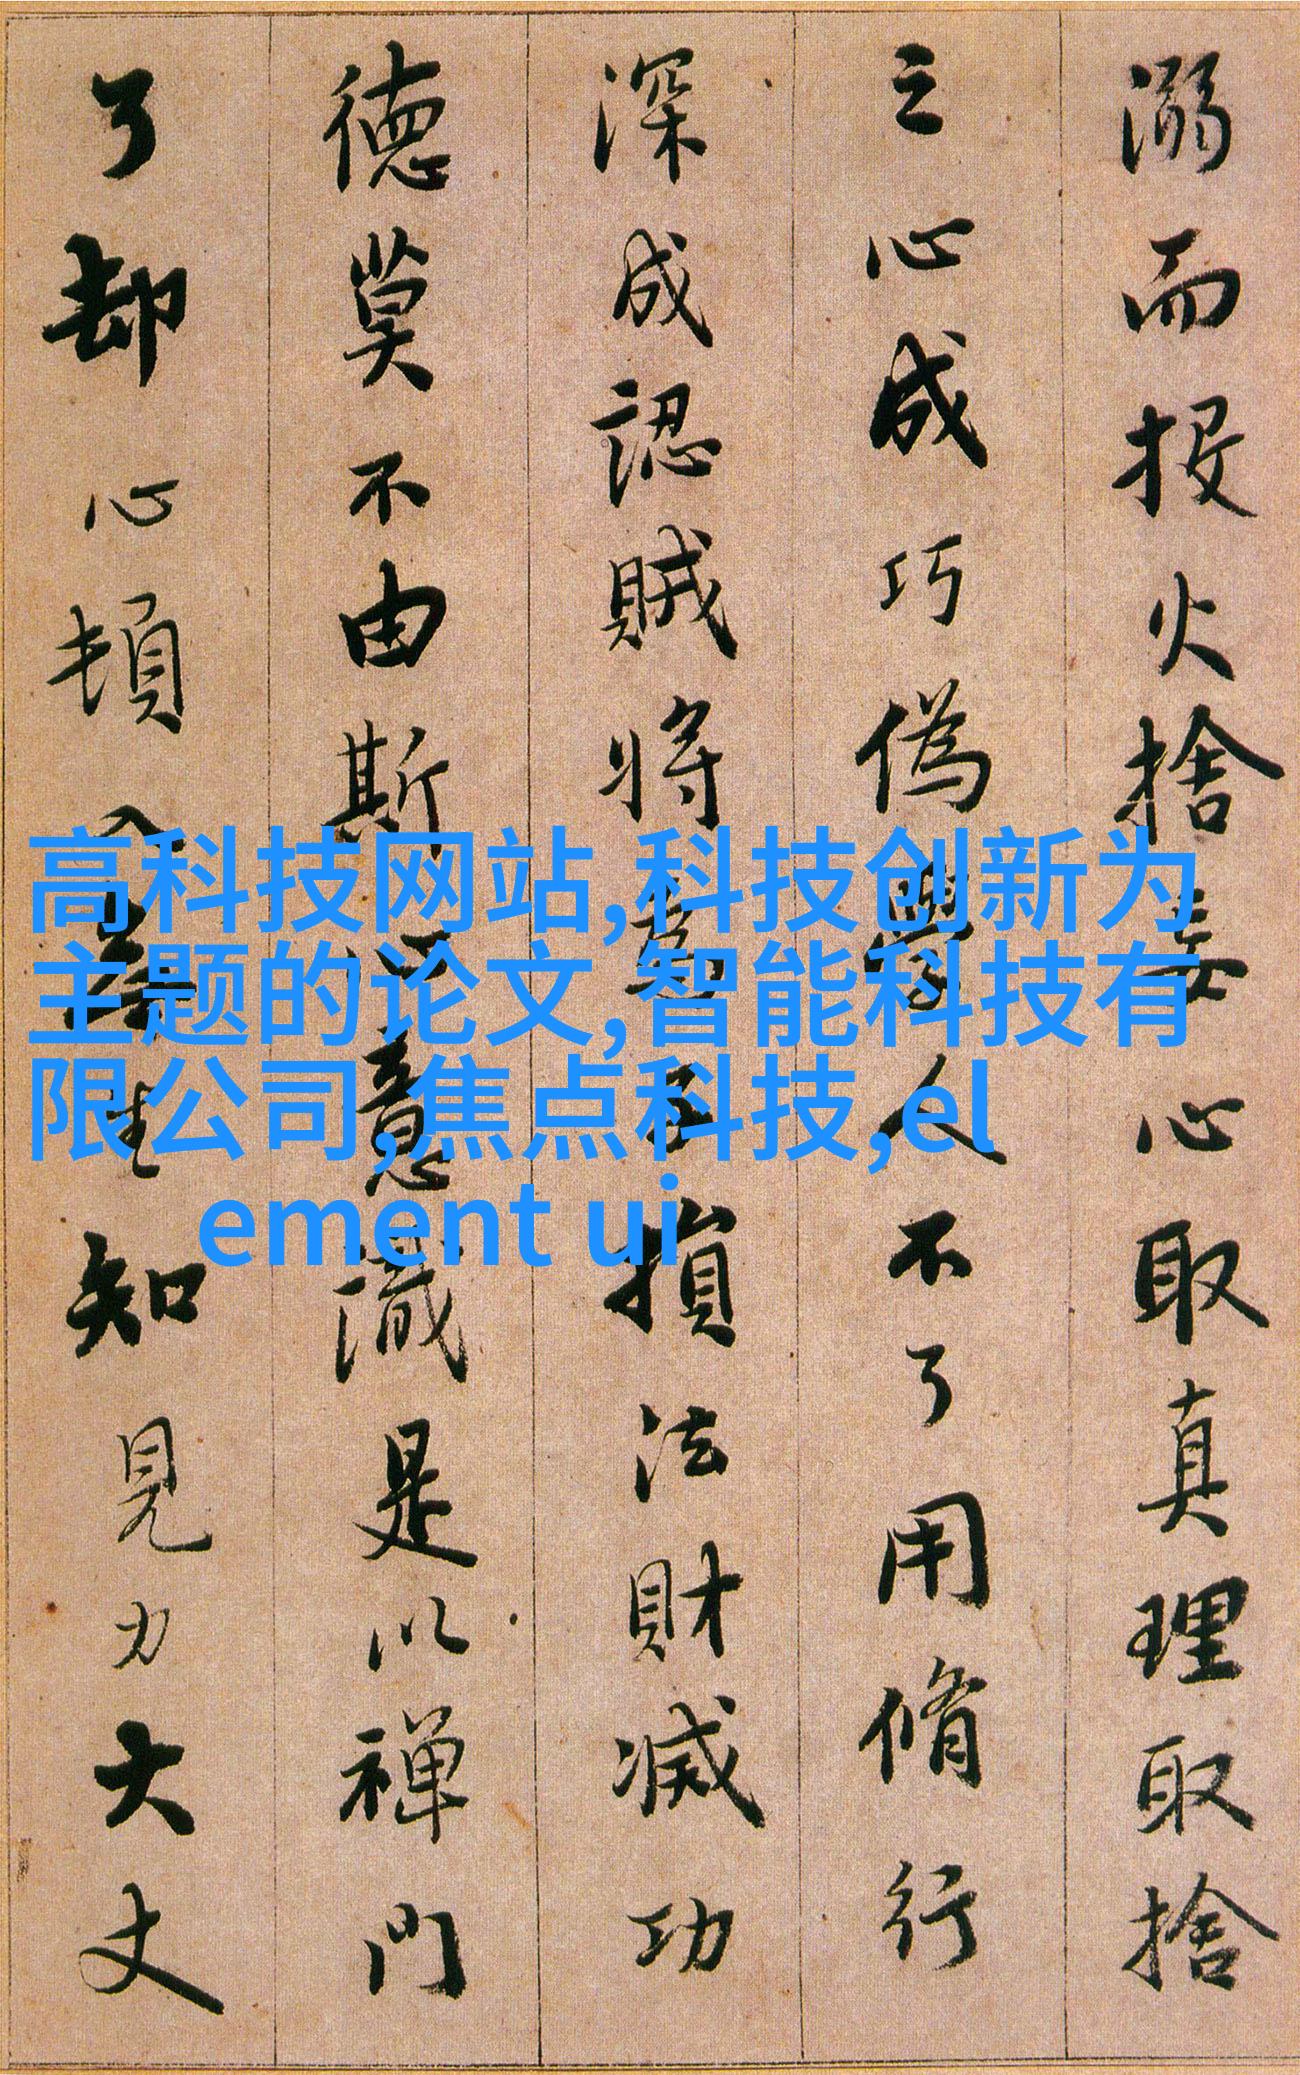 溺而投火捨妄心取真理取捨
之心成巧偽學人不了用脩行
深成認賊將為子損法財滅功
德莫不由斯心意識是以禪門
了却心頓入無生知見力大丈
高科技网站,科技创新为
主题的论文,智能科技有
限公司,焦点科技,el
ement ui